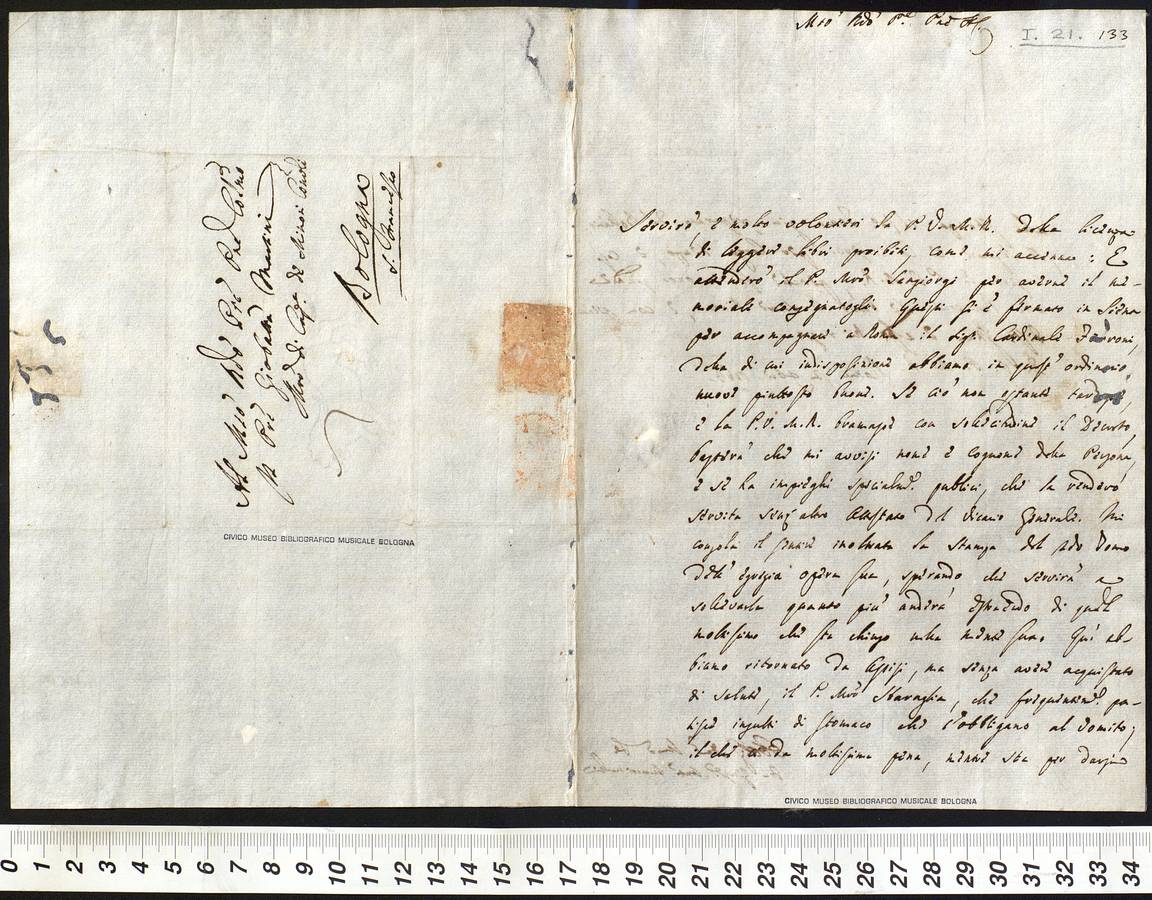 Al Mto Rdo Pre Pne Colmo
Il Pre Giobatta Martini
Mro di Capa de Minori Conli
Bologna
S. Francesco
CIVICO MUSEO BIBLIOGRAFICO MUSICALE BOLOGNA
Mto Rdo Pre
I. 21. 133
Servirò e molto volontieri la P. V. M. R. della licenza
di leggere libri proibiti, come mi accenna: E
attenderò il P. Mro Sangiorgi per averne il me-
moriale consegnatogli. Questi si è fermato in Siena
per accompagnare a Roma il Sigr Cardinale
della di cui indisposizione abbiamo in quest' ordinario
nuove piuttosto buone. Se ciò non ostante
e la P. V. M. R. bramasse con sollecitudine il Decreto,
basterà che mi avvisi nome e cognome della Persona,
e se ha impieghi specialmte publici, che la renderò
servita senz' altro Attestato del Vicario Generale. Mi
consola il sentire inoltrata la Stampa del 2do Tomo
dell' egregia opera sua, sperando che servirà a
sollevarla quanto più anderà di quel
moltissimo che sta chiuso nella mente sua. Qui ab-
biamo ritornato da Assisi, ma senza avere acquistato
di salute, il P. Mro che frequentemte pa-
tisce insulti di stomaco che l'obbligano al vomito;
il che ci dà moltissima pena, mentre sta per darsi
CIVICO MUSEO BIBLIOGRAFICO MUSICALE BOLOGNA
0 1 2 3 4 5 6 7 8 9 10 11 12 13 14 15 16 17 18 19 20 21 22 23 24 25 26 27 28 29 30 31 32 33 34